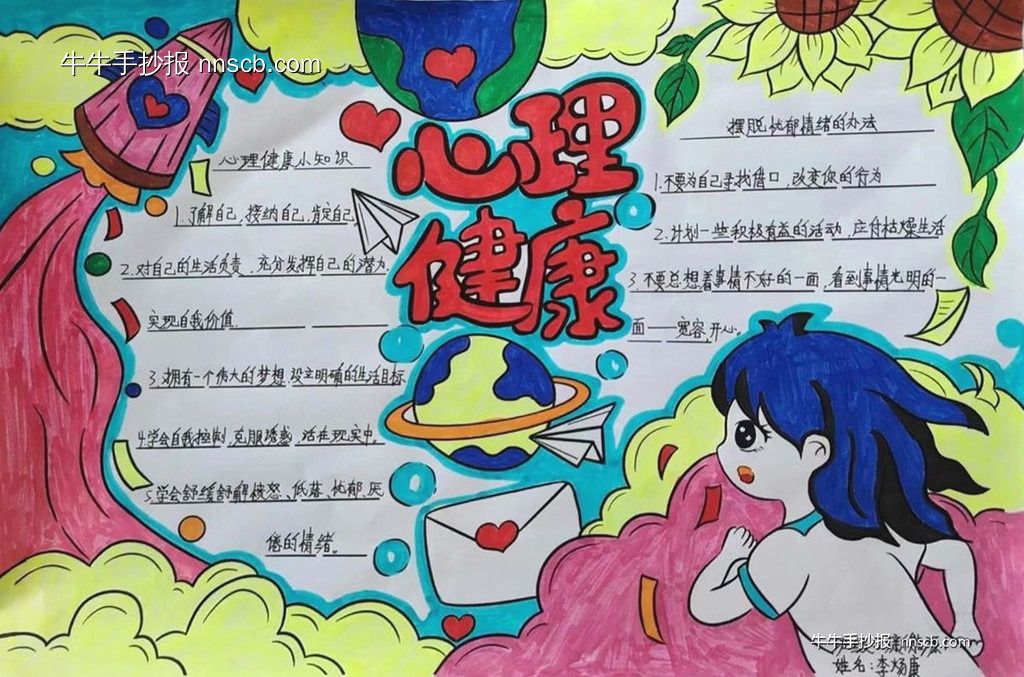 牛牛手抄报 nnscb.com
心理
健康
心理健康小知识
1.了解自己,接纳自己,肯定自己
2.对自己的生活负责,充分发挥自己的潜力,
实现自我价值.
3.拥有一个伟大的梦想,设立明确的生活目标
4.学会自我控制,克服诱惑,活在现实中.
5.学会舒缓舒解愤怒、低落、忧郁、厌
倦的情绪。
摆脱忧郁情绪的办法
1.不要为自己寻找借口,改变你的行为
2.计划一些积极有益的活动,应付枯燥生活
3.不要总想着事情不好的一面,看到事情光明的一
面——宽容,开心。
牛牛手抄报 nnscb.com
姓名:李炀康